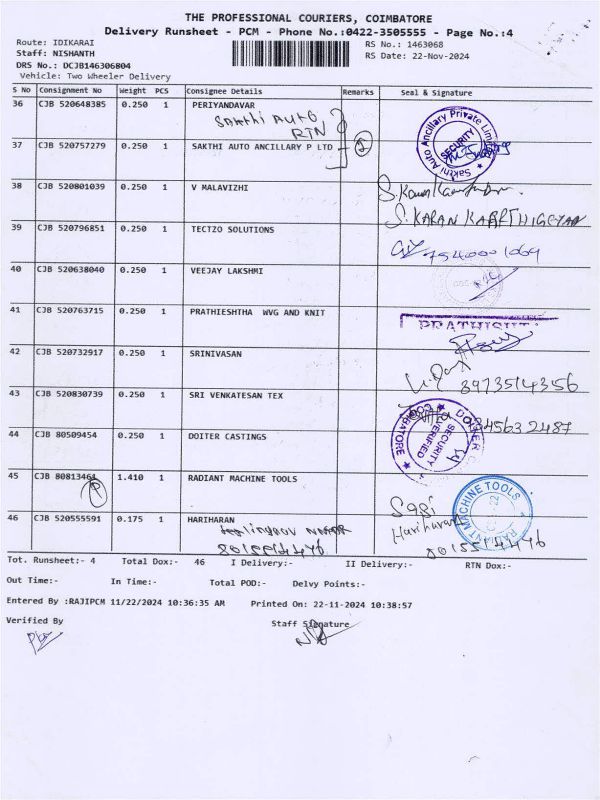 THE PROFESSIONAL COURIERS, COIMBATORE
Delivery Runsheet - PCM - Phone No.:0422-3505555 - Page No.:4
Route: IDIKARAI
RS No.: 1463068
Staff: NISHANTH
RS Date: 22-Nov-2024
DRS No.: DCJB146306804
Vehicle: Two Wheeler Delivery
S No Consignment No Weight PCS Consignee Details Remarks Seal & Signature
36 CJB 520648385 0.250 1 PERIYANDAVAR
Sakthi Auto
RTN
37 CJB 520757279 0.250 1 SAKTHI AUTO ANCILLARY P LTD
Sakthi Auto Ancillary Private Limi
SECURITY
38 CJB 520801039 0.250 1 V MALAVIZHI
S. KARAN KAARTHIGEYAN
39 CJB 520796851 0.250 1 TECTZO SOLUTIONS
7540001069
40 CJB 520638040 0.250 1 VEEJAY LAKSHMI
41 CJB 520763715 0.250 1 PRATHIESHTHA WVG AND KNIT
42 CJB 520732917 0.250 1 SRINIVASAN
8973514356
43 CJB 520830739 0.250 1 SRI VENKATESAN TEX
44 CJB 80509454 0.250 1 DOITER CASTINGS
SECURITY
VERIFIED
45 CJB 80813461 1.410 1 RADIANT MACHINE TOOLS
Sasi
MACHINE TOOLS
46 CJB 520555591 0.175 1 HARIHARAN
Hariharan
8015514476
8015514476
Tot. Runsheet:- 4 Total Dox:- 46 I Delivery:- II Delivery:- RTN Dox:-
Out Time:- In Time:- Total POD:- Delvy Points:-
Entered By :RAJIPCM 11/22/2024 10:36:35 AM Printed On: 22-11-2024 10:38:57
Verified By
Staff Signature